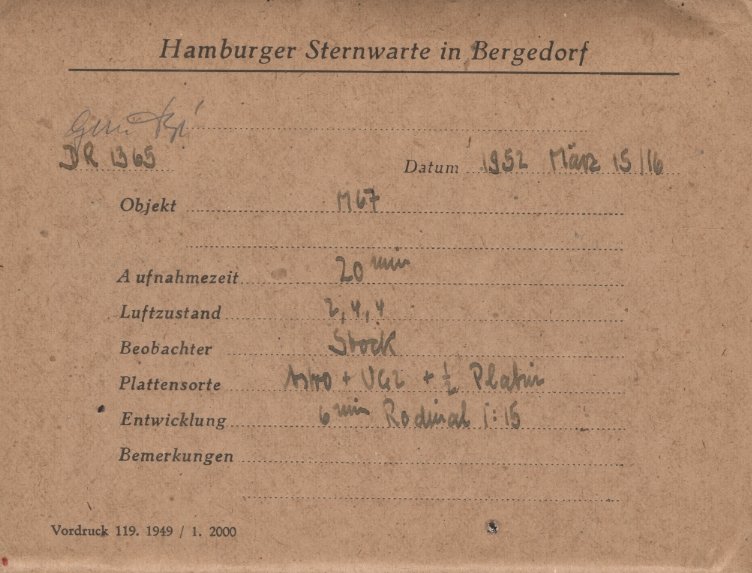 Hamburger Sternwarte in Bergedorf
DR 1365
Datum 1952 März 15/16
Objekt M67
Aufnahmezeit 20 min
Luftzustand 2, 4, 4
Beobachter Stock
Plattensorte Astro + UG2 + ½ Platin
Entwicklung 6 min Rodinal 1:15
Bemerkungen
Vordruck 119. 1949 / 1. 2000